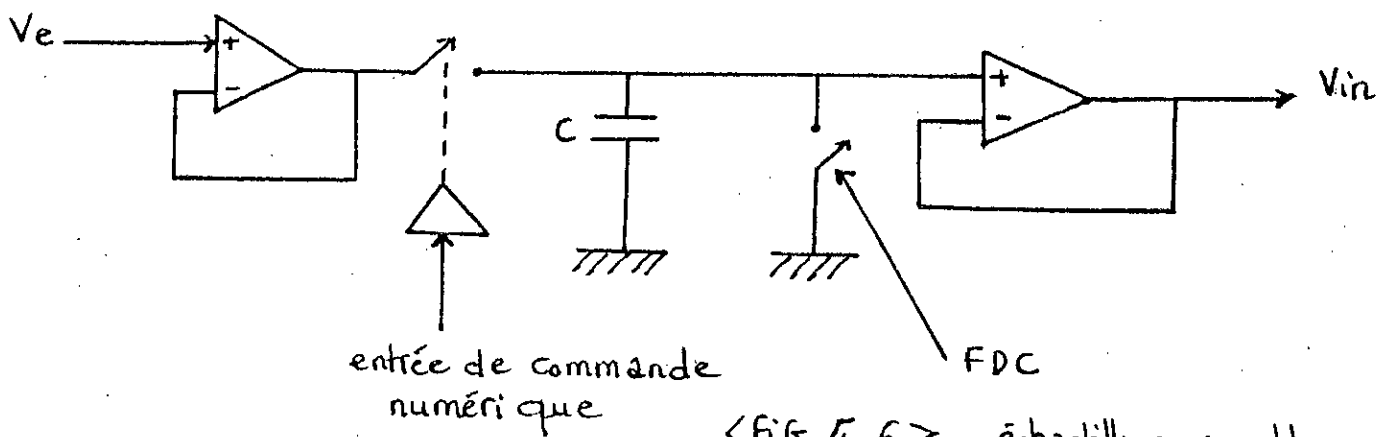 Ve
+
-
C
+
-
Vin
entrée de commande
numérique
FDC